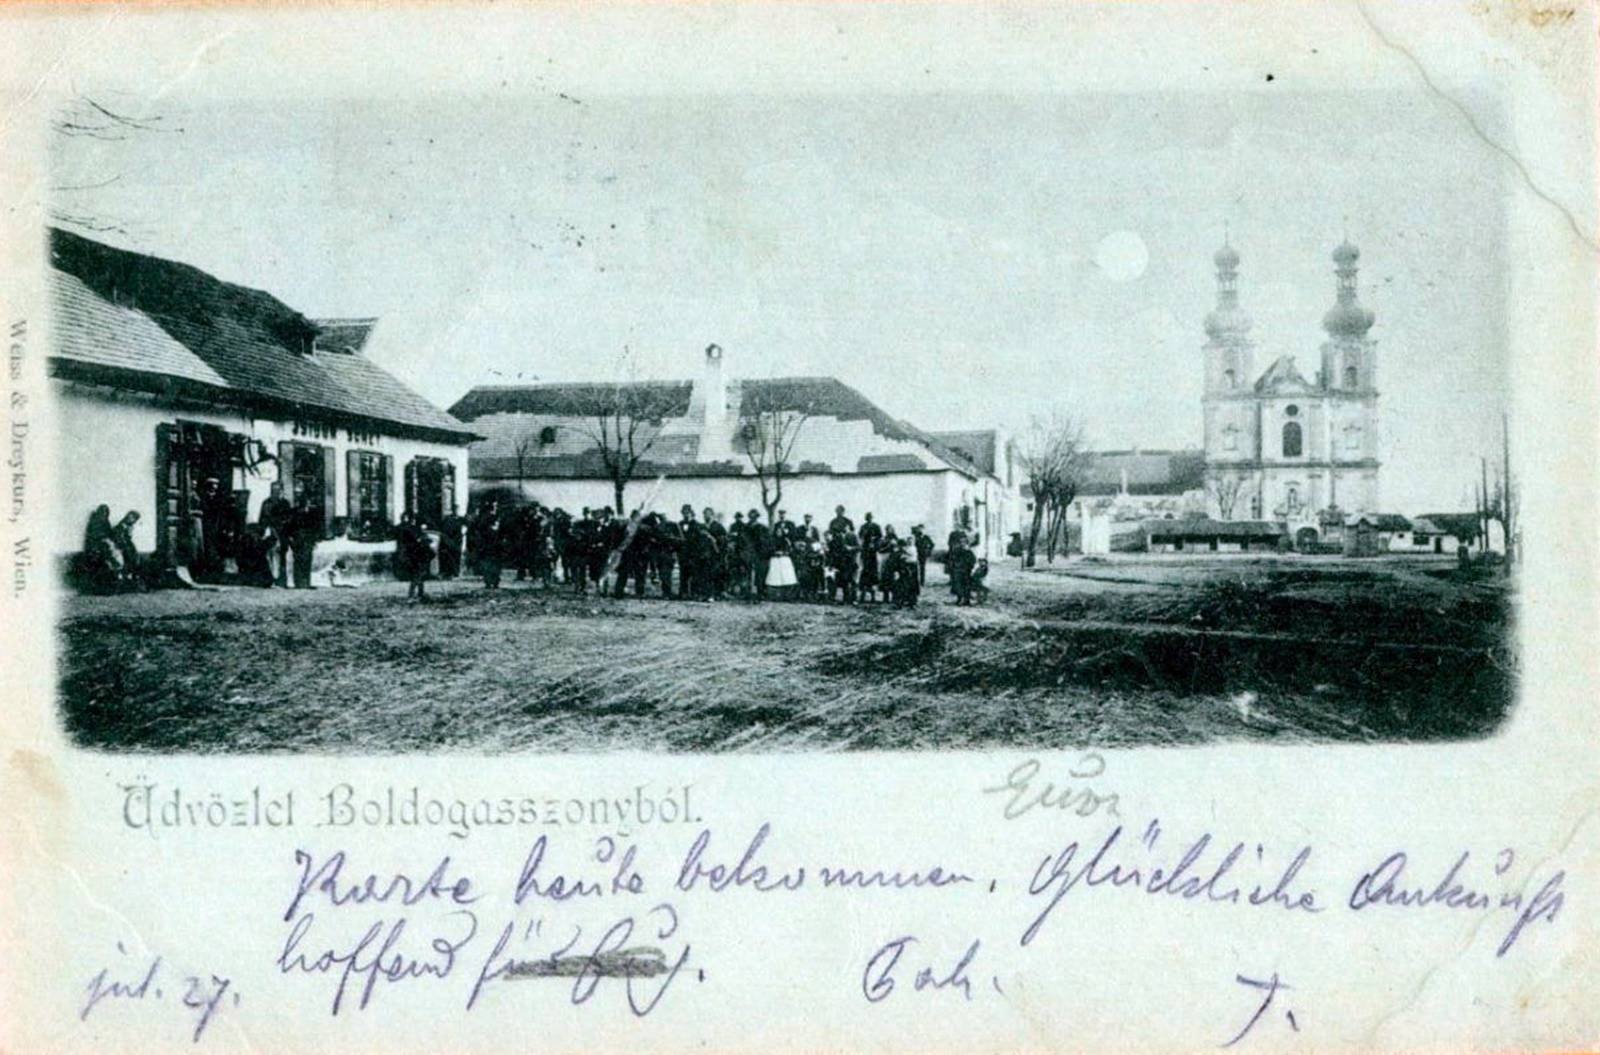 Weiss & Dreykurs, Wien.
Üdvözlet Boldogasszonyból.
Karte heute bekommen. Glückliche Ankunft
hoffend für
jul. 27.
J.